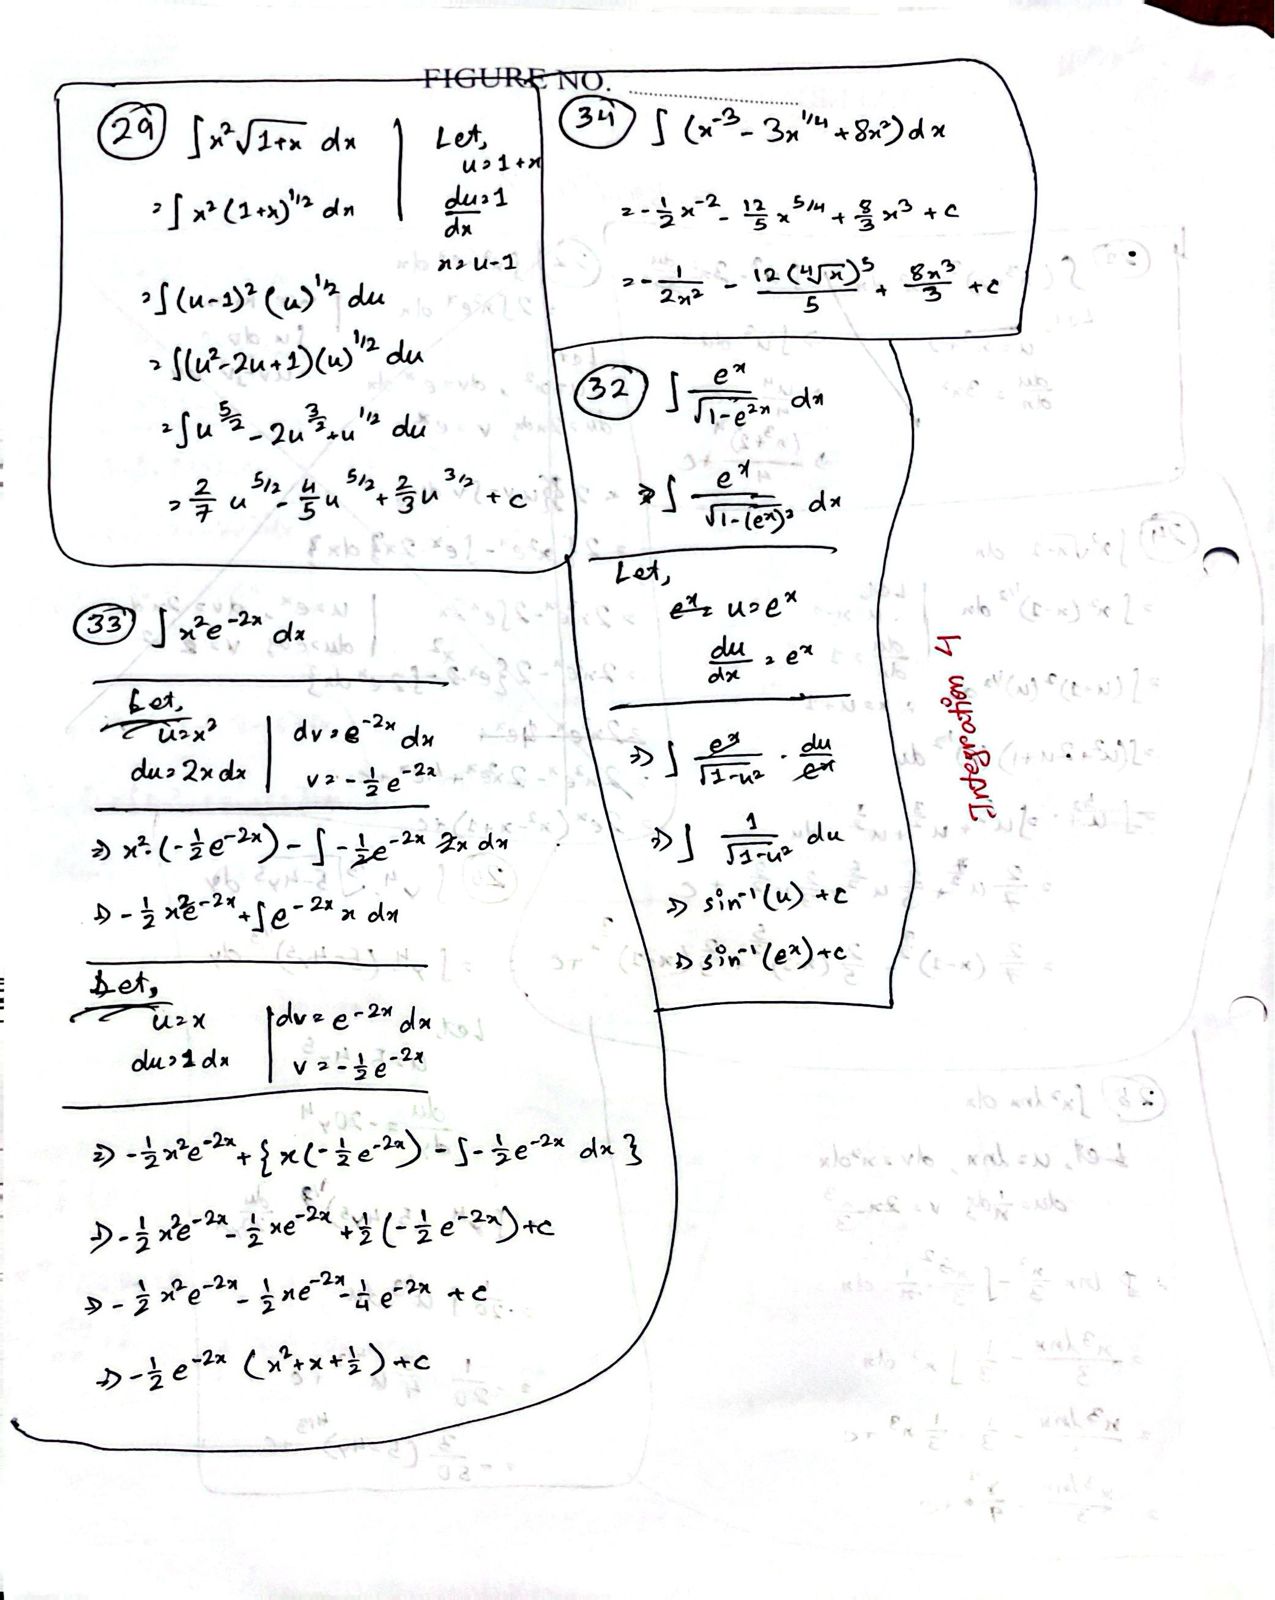 FIGURE NO. ..............................
29 ∫x²√(1+x) dx
= ∫x²(1+x)^1/2 dx
Let,
u=1+x
du/dx = 1
x=u-1
= ∫(u-1)²(u)^1/2 du
= ∫(u²-2u+1)(u)^1/2 du
= ∫u^5/2 - 2u^3/2 + u^1/2 du
= 2/7 u^5/2 - 4/5 u^5/2 + 2/3 u^3/2 + c
34 ∫(x^-3 - 3x^1/4 + 8x²)dx
= -1/2 x^-2 - 12/5 x^5/4 + 8/3 x³ + c
= -1/2x² - 12(⁴√x)⁵/5 + 8x³/3 + c
32 ∫ e^x/√(1-e^2x) dx
⇒ ∫ e^x/√(1-(e^x)²) dx
Let,
u=e^x
du/dx = e^x
⇒ ∫ e^x/√(1-u²) · du/e^x
⇒ ∫ 1/√(1-u²) du
⇒ sin^-1(u)+c
⇒ sin^-1(e^x)+c
Integration 4
33 ∫x²e^-2x dx
Let,
u=x² | dv=e^-2x dx
du=2x dx | v=-1/2 e^-2x
⇒ x²·(-1/2 e^-2x) - ∫-1/2 e^-2x 2x dx
⇒ -1/2 x²e^-2x + ∫e^-2x x dx
Let,
u=x | dv=e^-2x dx
du=1 dx | v=-1/2 e^-2x
⇒ -1/2 x²e^-2x + {x(-1/2 e^-2x) - ∫-1/2 e^-2x dx}
⇒ -1/2 x²e^-2x - 1/2 xe^-2x + 1/2(-1/2 e^-2x)+c
⇒ -1/2 x²e^-2x - 1/2 xe^-2x - 1/4 e^-2x + c
⇒ -1/2 e^-2x (x²+x+1/2)+c